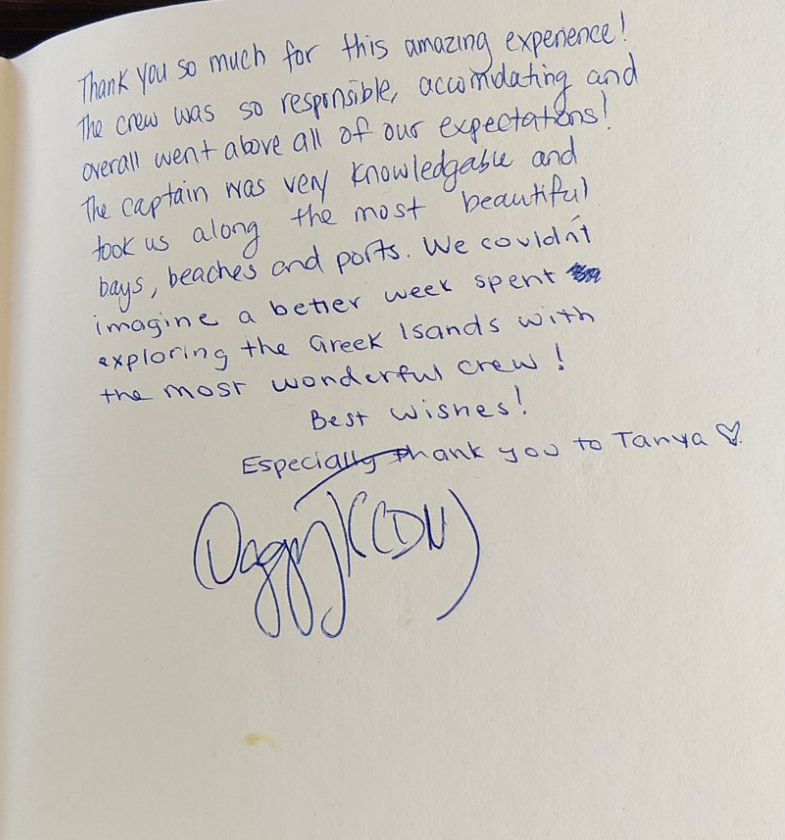 Thank you so much for this amazing experience!
The crew was so responsible, accomdating and
overall went above all of our expectations!
The captain was very knowledgable and
took us along the most beautiful
bays, beaches and ports. We couldn't
imagine a better week spent
exploring the Greek Isands with
the most wonderful crew!
Best wishes!
Especially thank you to Tanya ♡.
(CDN)